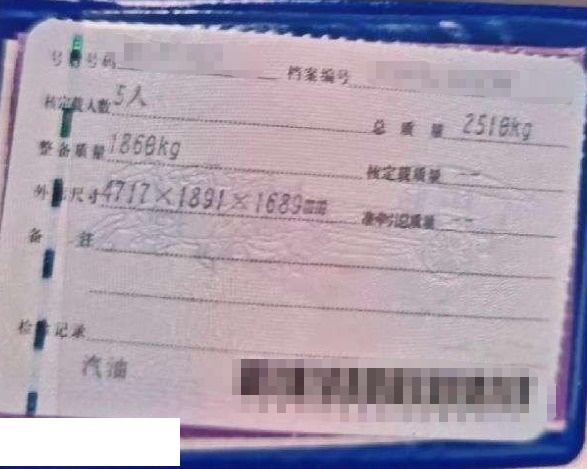 号牌号码 档案编号
核定载人数 5人 总质量 2510kg
整备质量 1860kg 核定载质量 --
外廓尺寸 4717×1891×1689mm 准牵引总质量 --
备注
检验记录
汽油